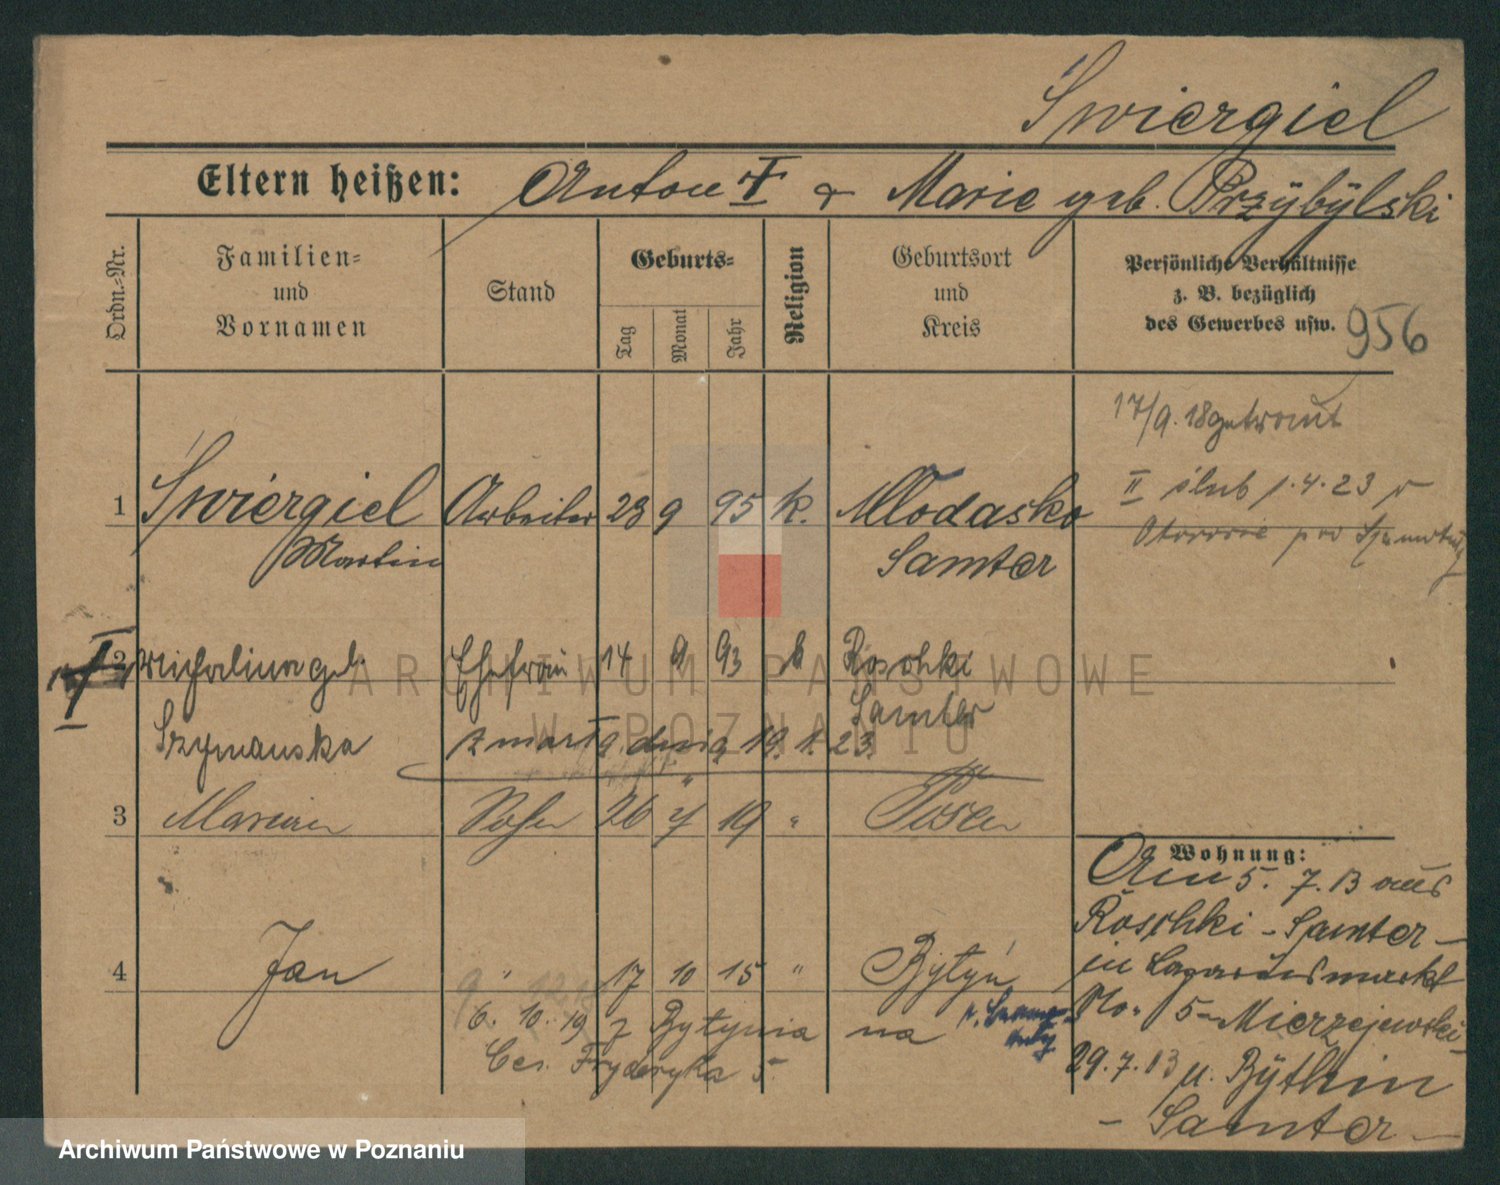 Świergiel
Eltern heißen: Anton & Marie geb. Przÿbÿlski
Ordn.-Nr.
Familien-
und
Vornamen
Stand
Geburts-
Tag
Monat
Jahr
Religion
Geburtsort
und
Kreis
Persönliche Verhältnisse
z. B. bezüglich
des Gewerbes usw.
956
17/9. 18 getraut
1 Świergiel Arbeiter 23 9 95 k. Mlodasko
Martin Samter
II ślub 1.4.23 w
Otorowie pow Szamotuły
2 Michalina geb. Ehefrau 14 9 93 k Röschki
Szymanska Samter
zmarła dnia 19. 1. 23.
3 Marian Sohn 26 4 19 " Posen
4 Jan " 17 10 15 " Bÿtÿń
6. 10. 19 z Bytynia na
Ces. Fryderyka 5.
Wohnung:
Am 5. 7. 13 aus
Röschki - Samter -
in Lazarusmarkt
No. 5 - Mierzejewski -
29. 7. 13 n. Bÿthin
- Samter -
ARCHIWUM PAŃSTWOWE
W POZNANIU
Archiwum Państwowe w Poznaniu